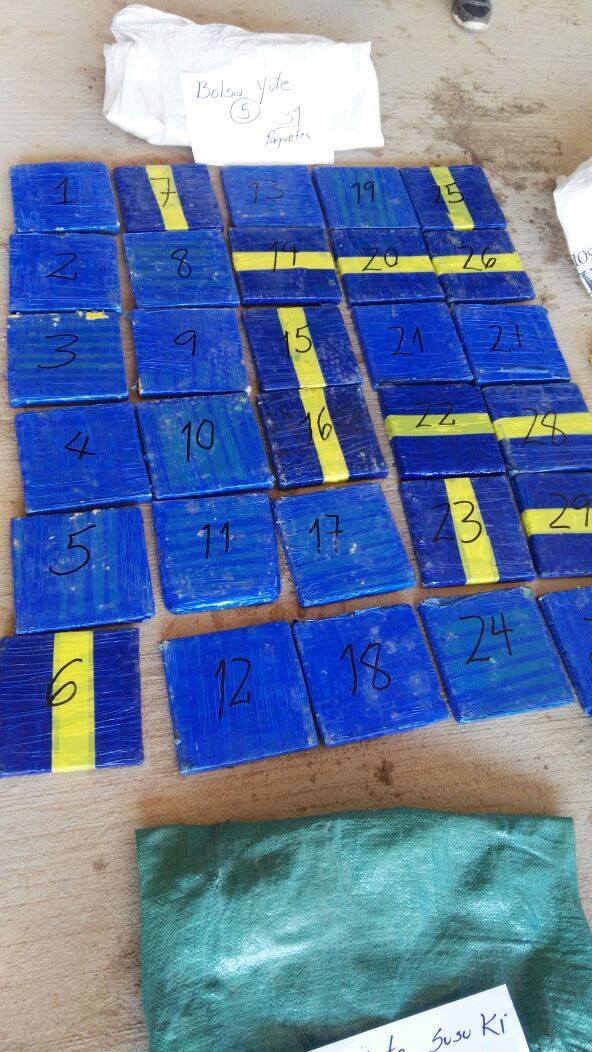 Bolsa Yute
5
31
Paquetes
1 7 13 19 25
2 8 14 20 26
3 9 15 21 27
4 10 16 22 28
5 11 17 23 29
6 12 18 24
SusuKi